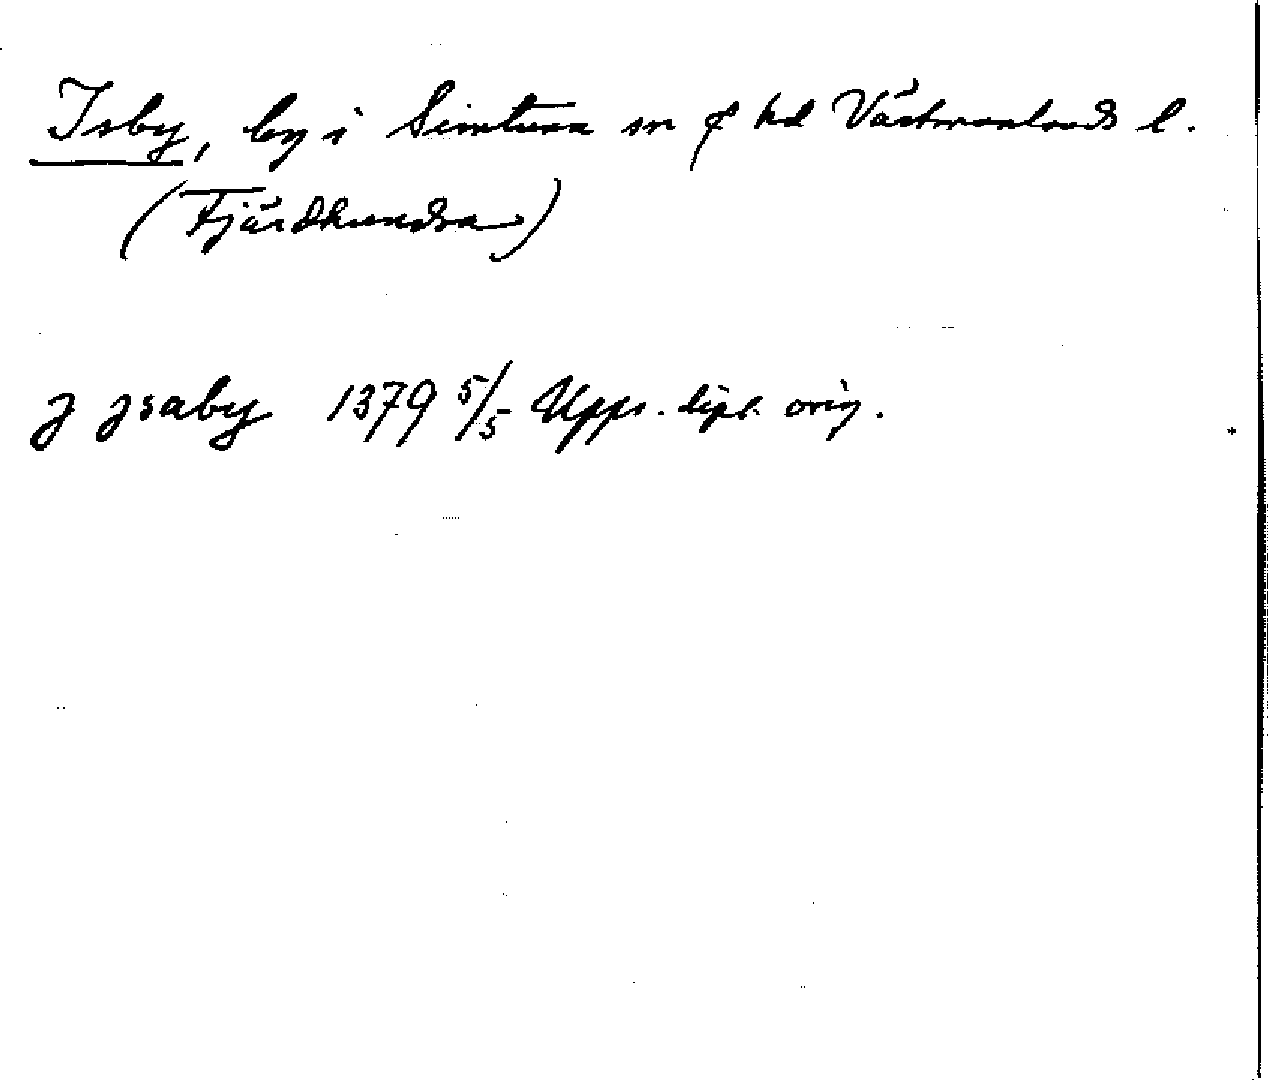 Isby, by i Simtuna sn ₵ hd Västmanlands l.
(Fjärdhundra)
J Jsaby 1379 5/5 Upps. dipl. orig.